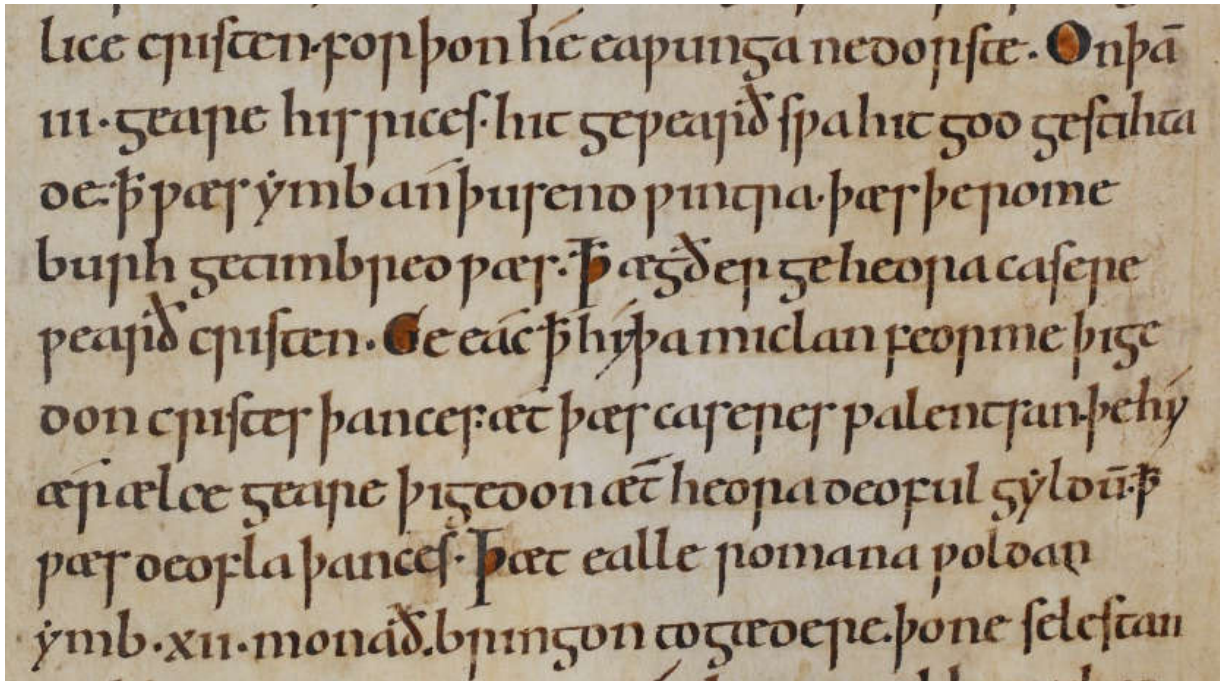 lice cristen· forþon he eaƿunga ne dorste· On þā
iii· geare his rices· hit geƿearð sƿa hit god gestihta
de· ꝥ ƿæs ymb an þusend ƿintra· þæs þe rome
burh getimbred ƿæs· Ꝥ ægðer ge heora casere
ƿearð cristen· Ge eác ꝥ hy þa miclan feorme þige
don cristes þances· æt þæs caseres palentsan· þe hý
ær ælce geare þigedon æt heora deoful gyldū· ꝥ
ƿæs deofla þances· Þæt ealle romana ƿoldan
ymb· xii· monað· bringon togædere· þone selestan